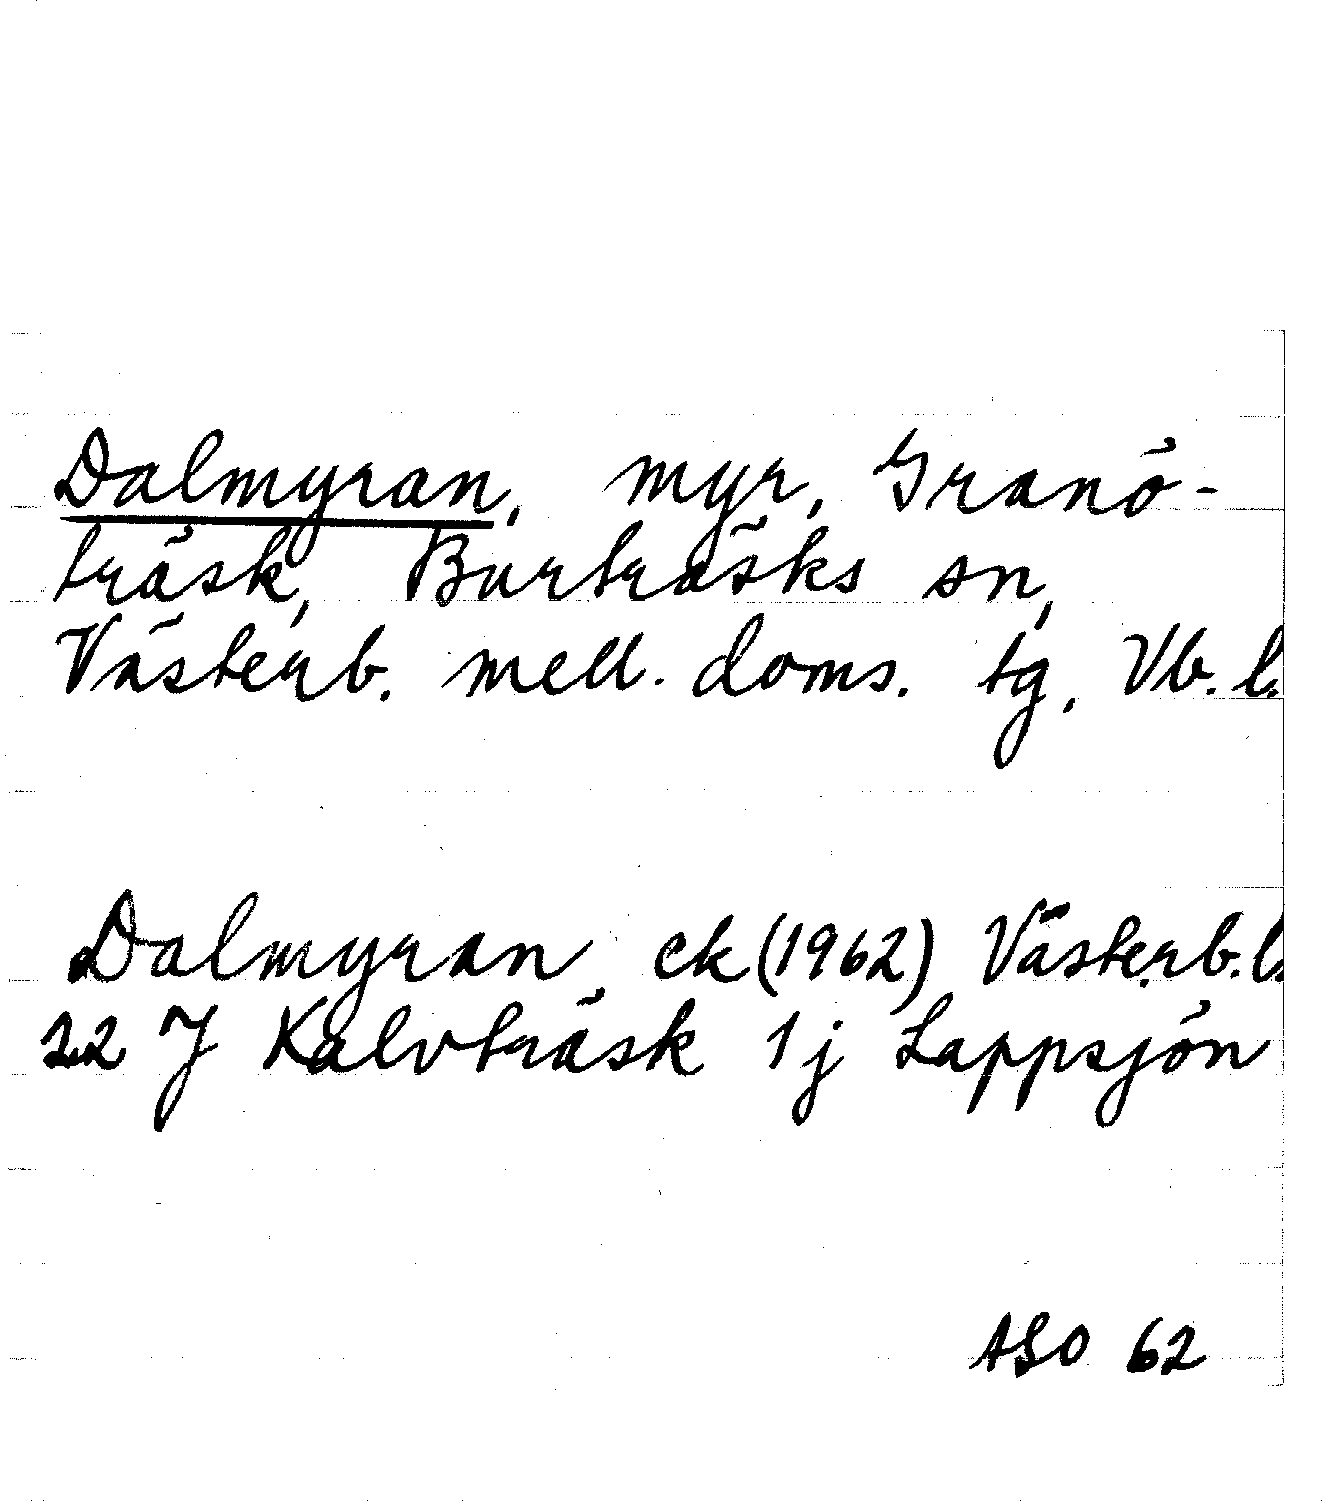 Dalmyran, myr, Granö-
träsk, Burträsks sn,
Västerb. mell. doms. tg, Vb. l.
Dalmyran ek (1962) Västerb. l.
22 J Kalvträsk 1j Lappsjön
ASO 62